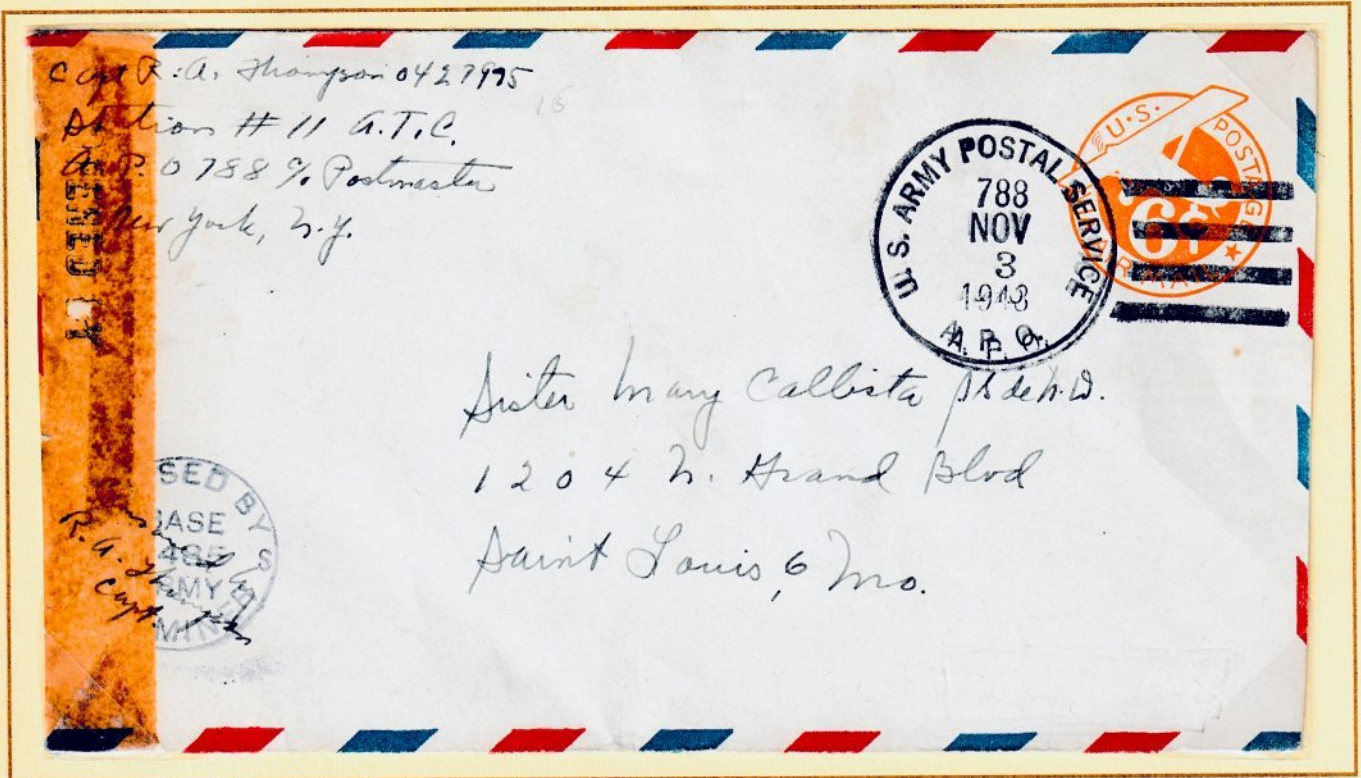 Capt R. A. Thompson 0427995
Station # 11 A.T.C.
A.P.O 788 % Postmaster
New York, N.Y.
16
U.S. ARMY POSTAL SERVICE
788
NOV
3
1943
A.P.O.
U.S. POSTAGE
6¢
AIR MAIL
Sister Mary Callista
1204 N. Grand Blvd
Saint Louis, 6 Mo.
SED BY
BASE
1485
ARMY
MIN
R. A. Thompson
Capt.